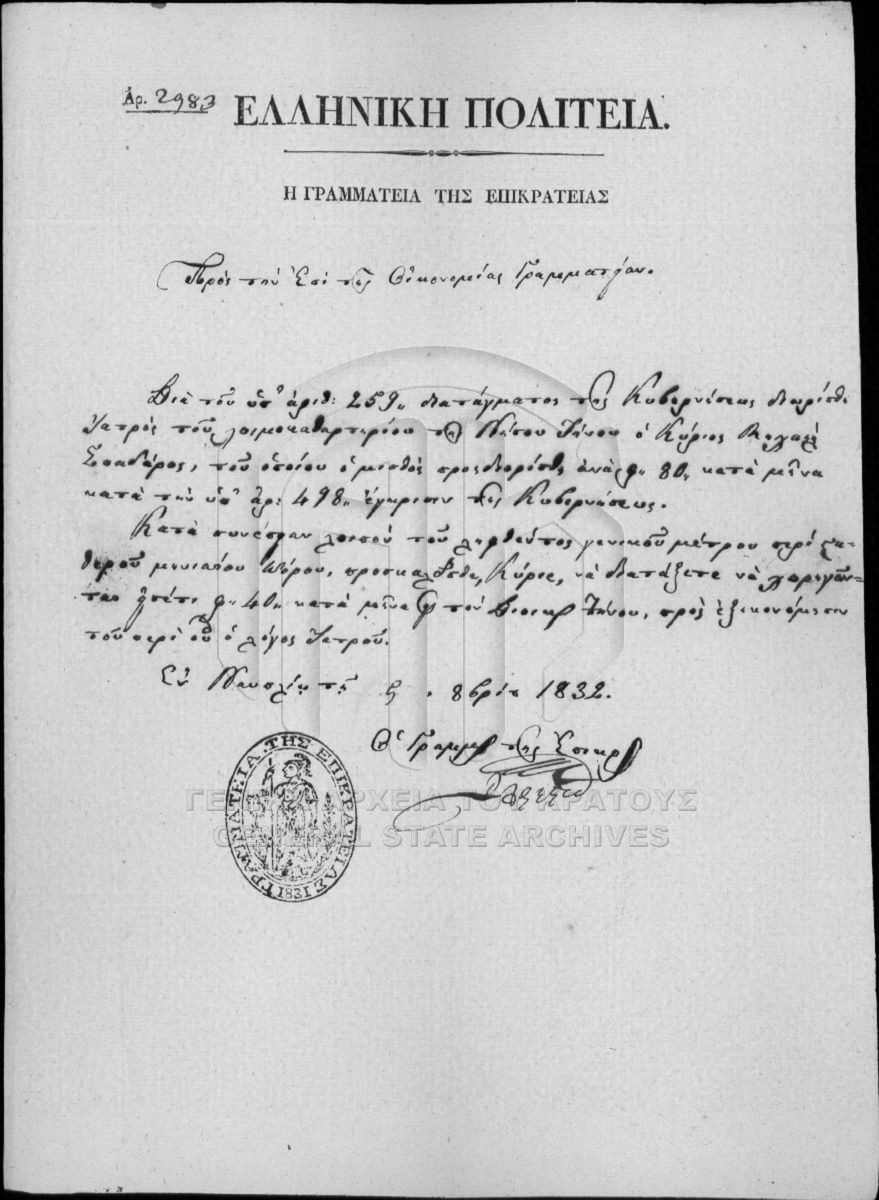 Ἀρ. 2983
ΕΛΛΗΝΙΚΗ ΠΟΛΙΤΕΙΑ.
Η ΓΡΑΜΜΑΤΕΙΑ ΤΗΣ ΕΠΙΚΡΑΤΕΙΑΣ
Πρὸς τὴν ἐπὶ τῆς Οἰκονομίας Γραμματείαν.
Διὰ τοῦ ὑπ' ἀριθ: 259,, διατάγματος τῆς Κυβερνήσεως διωρίσθη
Ἰατρὸς τοῦ λοιμοκαθαρτηρίου τῆς Νήσου Τήνου ὁ Κύριος Μιχαὴλ
Σπαδάρος, τοῦ ὁποίου ὁ μισθὸς προσδιορίσθη ἀνὰ φ. 80,, κατὰ μῆνα
κατὰ τὴν ὑπ' ἀρ: 498,, ἔγκρισιν τῆς Κυβερνήσεως.
Κατὰ συνέπειαν λοιπὸν τοῦ ληφθέντος γενικοῦ μέτρου περὶ
μηνιαίου πόρου, προσκαλεῖσθε, Κύριε, νὰ διατάξετε νὰ χορηγῶν-
ται φ. 40,, κατὰ μῆνα τὸν Διοικη Τήνου, πρὸς ἐξοικονόμησιν
τοῦ περὶ οὗ ὁ λόγος Ἰατροῦ.
Ἐν Ναυπλίῳ τῇ 8βρίου 1832.
Ὁ Γραμμ τῆς Ἐπικρ
ΓΡΑΜΜΑΤΕΙΑ ΤΗΣ ΕΠΙΚΡΑΤΕΙΑΣ 1831
ΓΕΝΙΚΑ ΑΡΧΕΙΑ ΤΟΥ ΚΡΑΤΟΥΣ
GENERAL STATE ARCHIVES